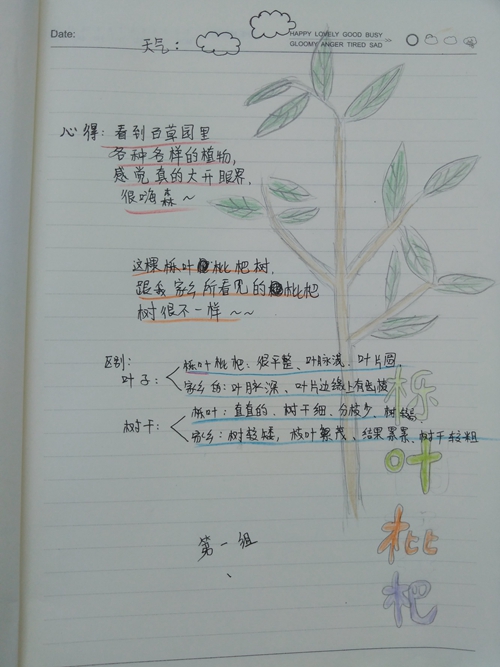 Date:
HAPPY LOVELY GOOD BUSY
GLOOMY ANGER TIRED SAD
天气:
心得:看到百草园里
各种各样的植物,
感觉真的大开眼界,
很嗨森~
这棵栎叶枇杷树,
跟我家乡所看见的枇杷
树很不一样~~
区别:
叶子:
栎叶枇杷:很平整、叶脉浅、叶片圆,
家乡的:叶脉深、叶片边缘上有齿
树干:
栎叶:直直的,树干细,分枝少,树
家乡:树较矮,枝叶繁茂、结果累累,树干较粗
栎
叶
枇
杷
第一组